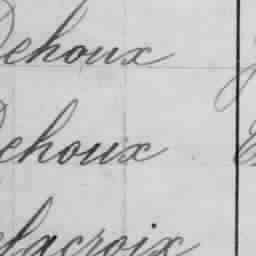 Dehoux
Dehoux
elacroix